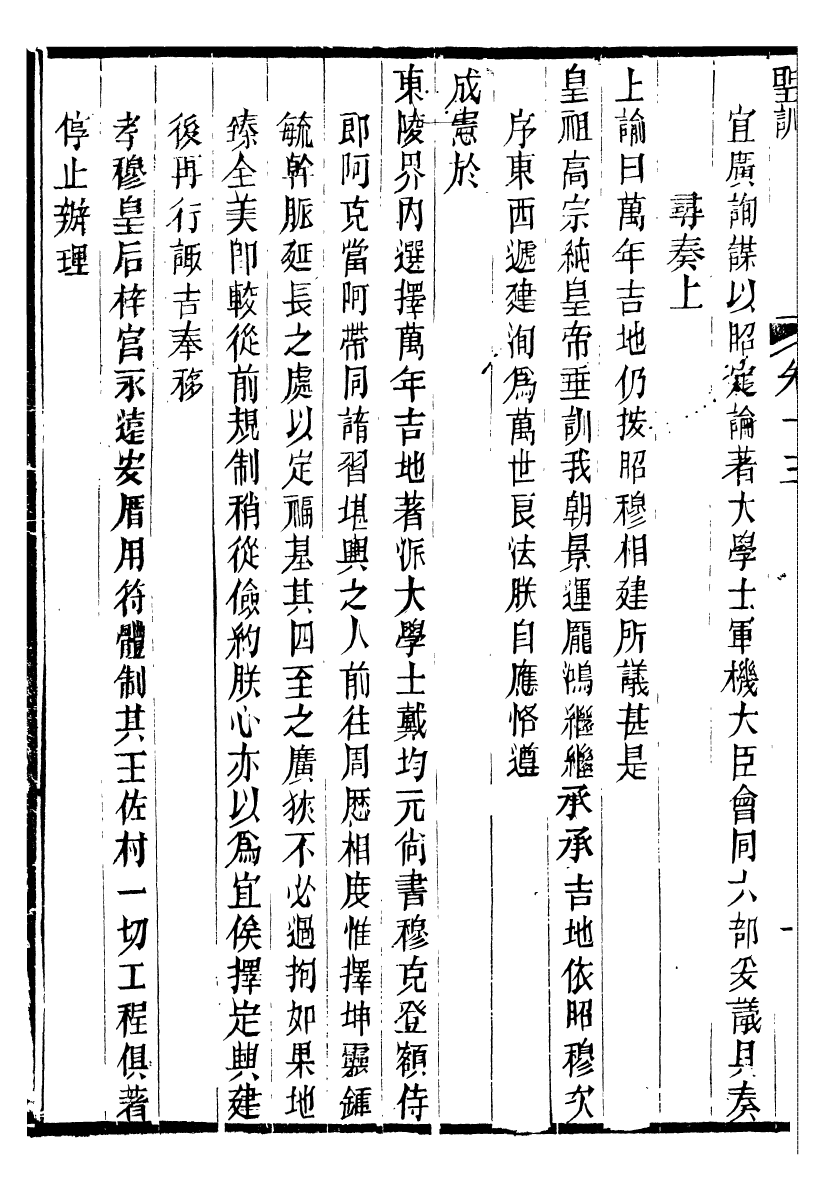 聖訓 卷十三 一
宜廣詢謀以昭定論著大學士軍機大臣會同六部妥議具奏
尋奏上
上諭曰萬年吉地仍按昭穆相建所議甚是
皇祖高宗純皇帝垂訓我朝景運龐鴻繼繼承承吉地依昭穆次
序東西遞建洵爲萬世良法朕自應恪遵
成憲於
東陵界內選擇萬年吉地著派大學士戴均元尙書穆克登額侍
郎阿克當阿帶同諳習堪輿之人前往周厯相度惟擇坤靈鍾
毓幹脈延長之處以定福基其四至之廣狹不必過拘如果地
臻全美卽較從前規制稍從儉約朕心亦以爲宜俟擇定興建
後再行諏吉奉移
孝穆皇后梓宮永遠安厝用符體制其王佐村一切工程俱著
停止辦理